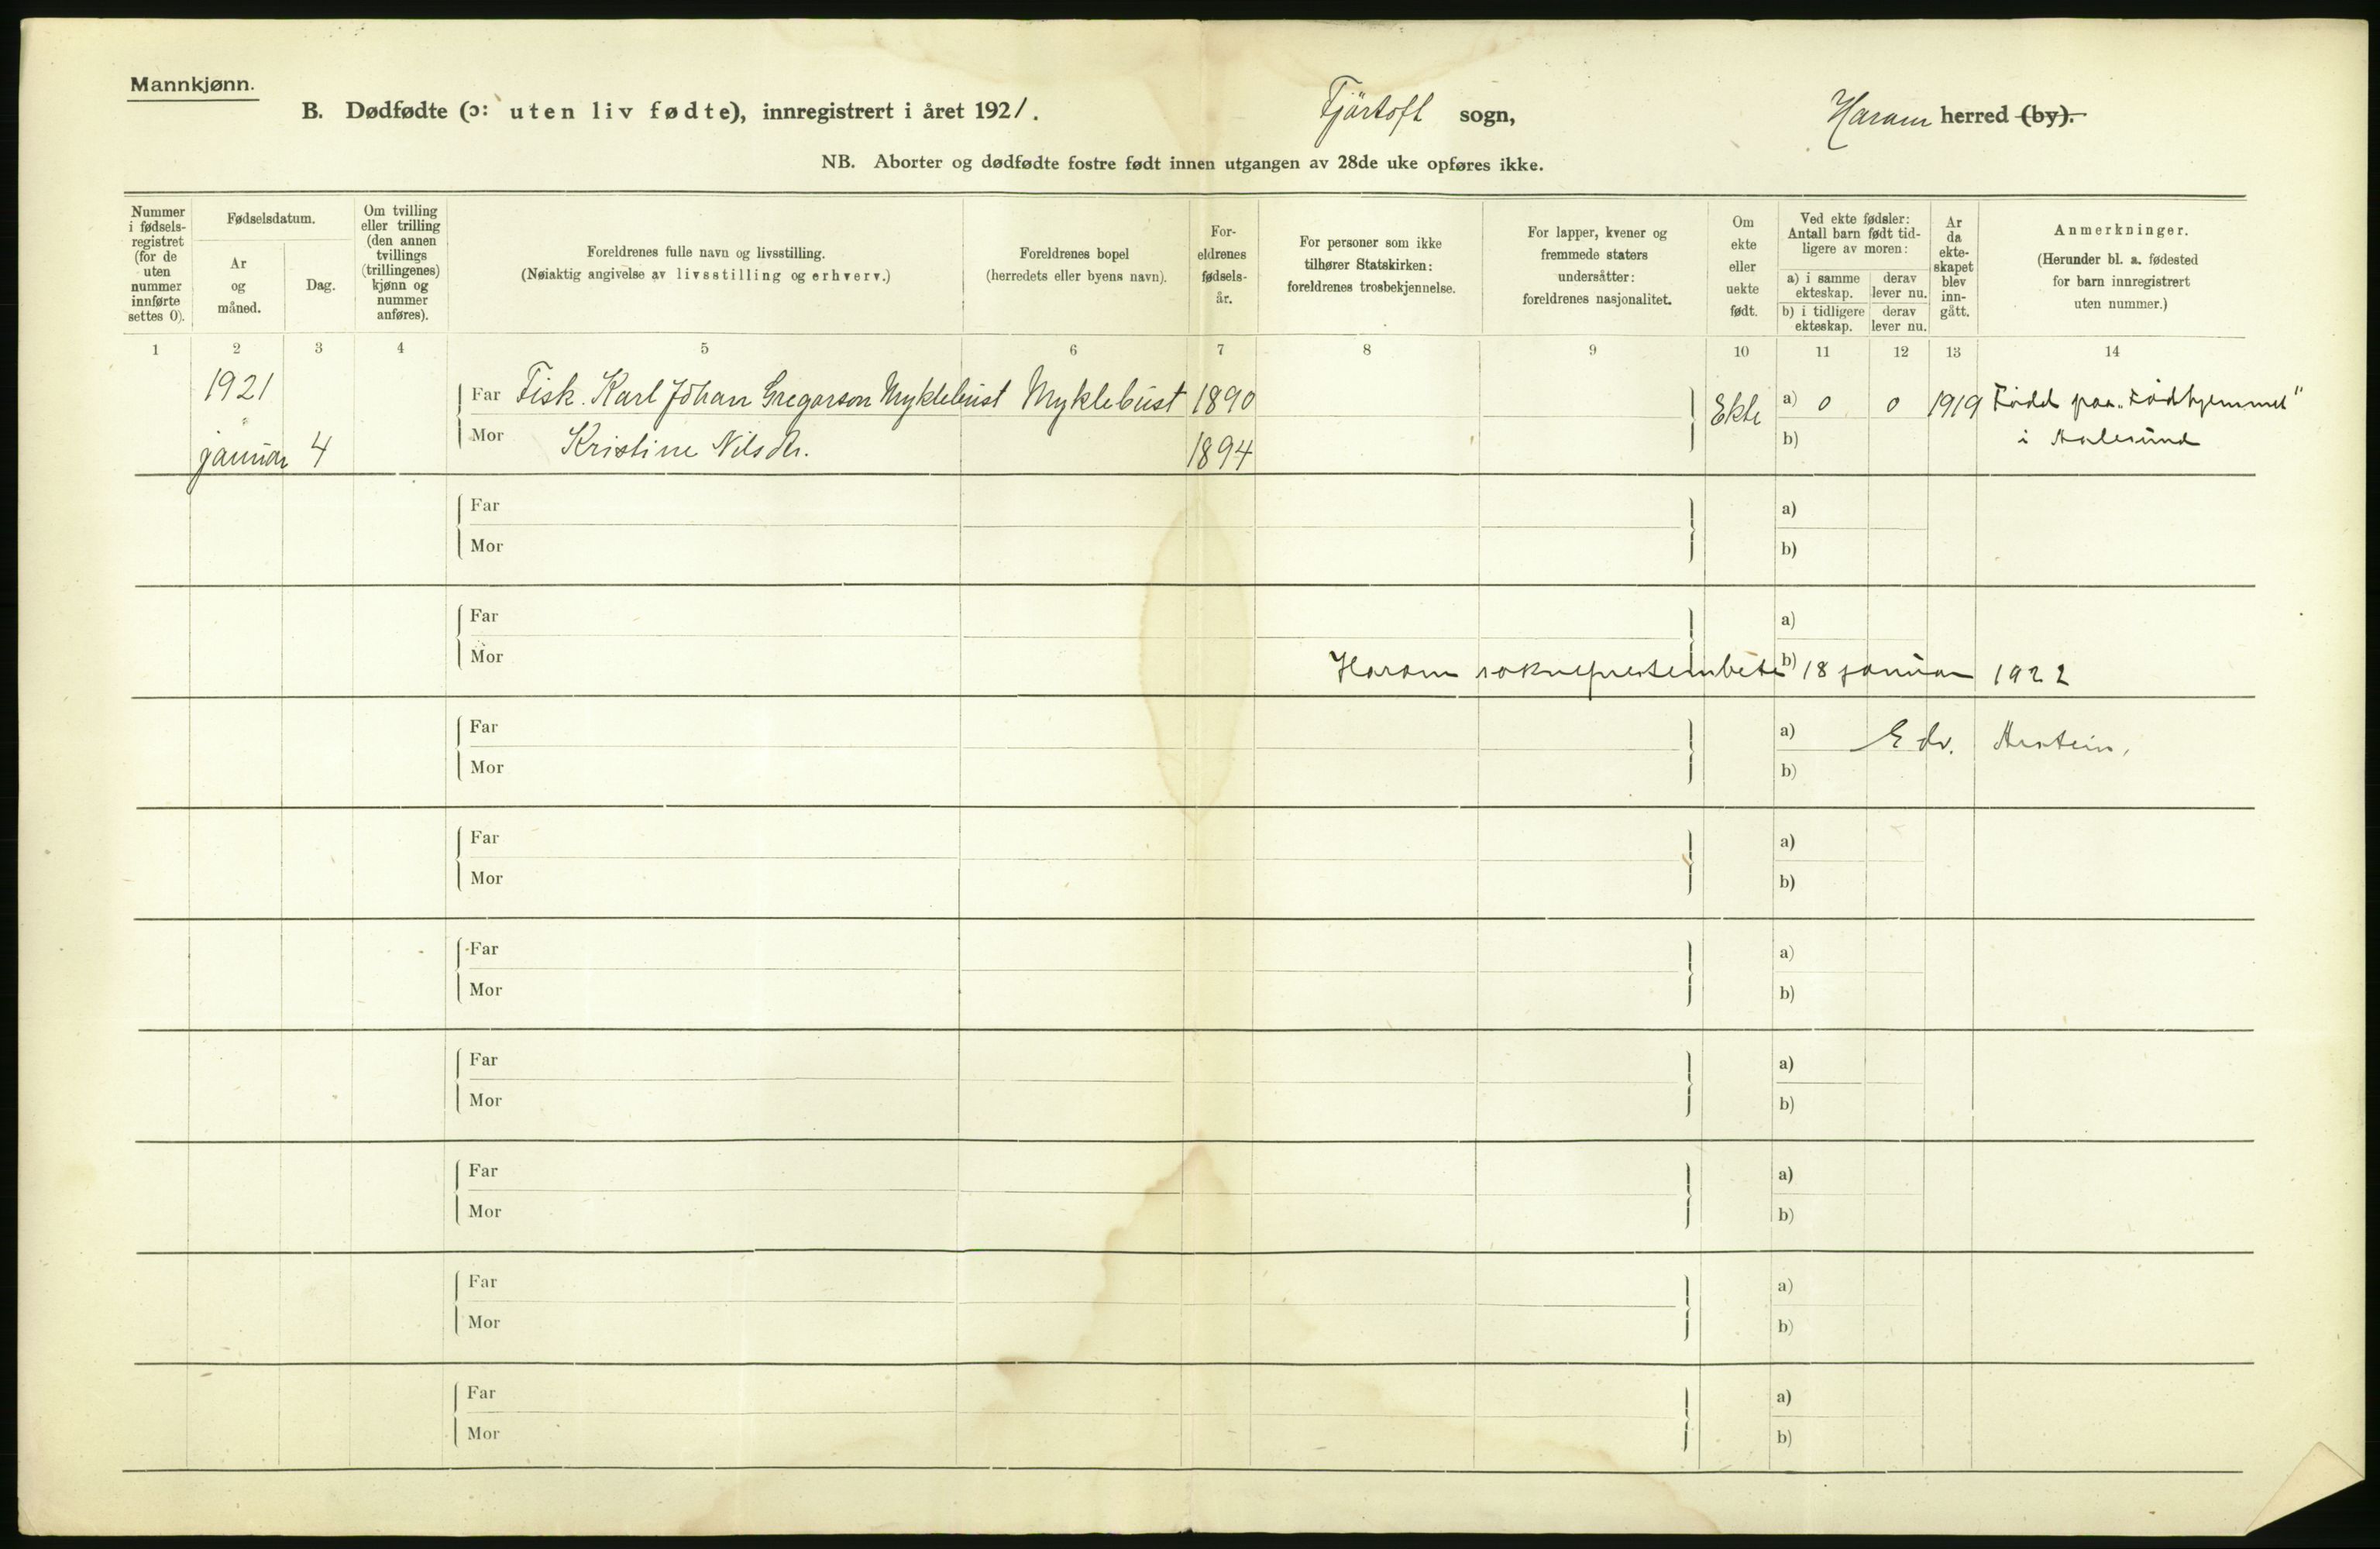 Mannkjønn.
B. Dødfødte (ɔ: uten liv fødte), innregistrert i året 1921. Fjörtoft sogn, Haram herred (by).
NB. Aborter og dødfødte fostre født innen utgangen av 28de uke opføres ikke.
Nummer i fødsels- registret (for de uten nummer innførte settes 0).
Fødselsdatum.
Ar og måned.
Dag.
Om tvilling eller trilling (den annen tvillings (trillingenes) kjønn og nummer anføres).
Foreldrenes fulle navn og livsstilling.
(Nøiaktig angivelse av livsstilling og erhverv.)
Foreldrenes bopel
(herredets eller byens navn).
For- eldrenes fødsels- år.
For personer som ikke
tilhører Statskirken:
foreldrenes trosbekjennelse.
For lapper, kvener og
fremmede staters
undersåtter:
foreldrenes nasjonalitet.
Om ekte eller uekte født.
Ved ekte fødsler:
Antall barn født tid-
ligere av moren:
a) i samme ekteskap.
derav lever nu.
b) i tidligere ekteskap.
derav lever nu.
Ar da ekte- skapet blev inn- gått.
Anmerkninger.
(Herunder bl. a. fødested
for barn innregistrert
uten nummer.)
1 2 3 4 5 6 7 8 9 10 11 12 13 14
1921 Far Fisk. Karl Johan Gregorson Myklebust Myklebust 1890 Ekte a) 0 0 1919 Född paa "Födhjemmet"
januar 4 Mor Kristine Nilsdtr. 1894 b) i Aalesund
Far a)
Mor b)
Far a)
Mor b)
Haram sokneprestembete 18 januar 1922
Far a) Edv.
Mor b)
Far a)
Mor b)
Far a)
Mor b)
Far a)
Mor b)
Far a)
Mor b)
Far a)
Mor b)
Far a)
Mor b)